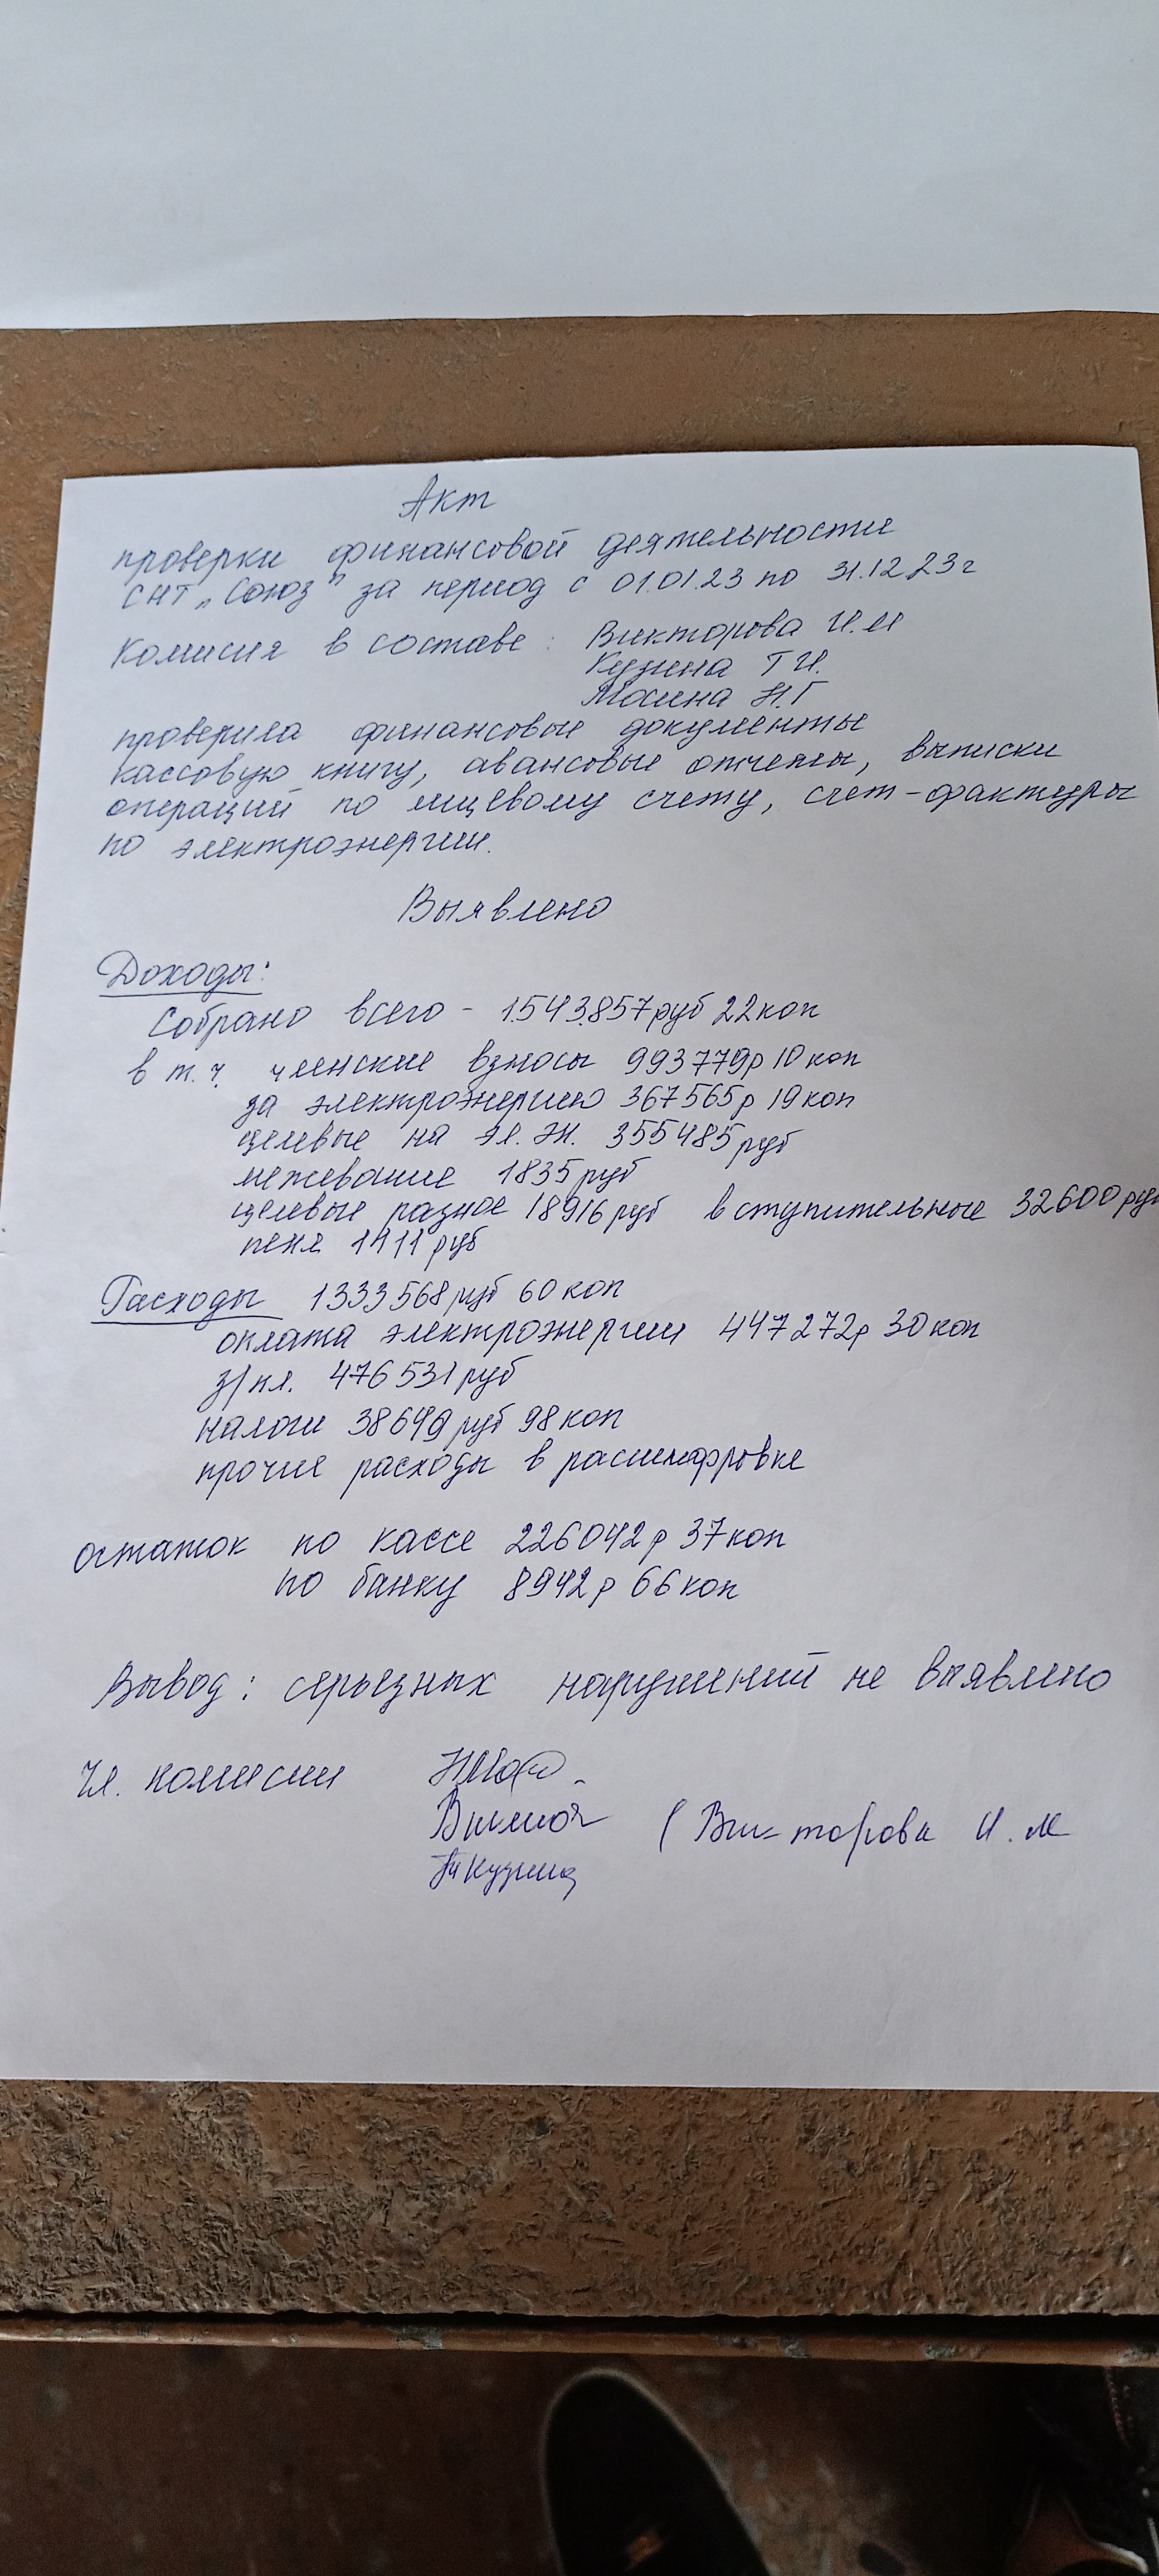 Акт
проверки финансовой деятельности
СНТ „Союз" за период с 01.01.23 по 31.12.23г
Комисия в составе: Викторова И.М
Кузина Т И.
Мосина Н.Г
проверила финансовые документы
кассовую книгу, авансовые отчеты, выписки
операций по лицевому счету, счет-фактуры
по электроэнергии.
Выявлено
Доходы:
Собрано всего - 1.543.857 руб 22 коп
в т.ч. членские взносы 993779р 10 коп
за электроэнергию 367565р 19 коп
целевые на эл. эн. 355485 руб
межевание 1835 руб
целевые разное 18916 руб вступительные 32600 руб
пеня 1411 руб
Расходы 1333568 руб 60 коп
оплата электроэнергии 447272р 30 коп
з/пл. 476531 руб
налоги 38649 руб 98 коп
прочие расходы в расшифровке
остаток по кассе 226042р 37 коп
по банку 8942р 66 коп
Вывод: серьезных нарушений не выявлено
Чл. комисии
(Викторова И.М
Кузина